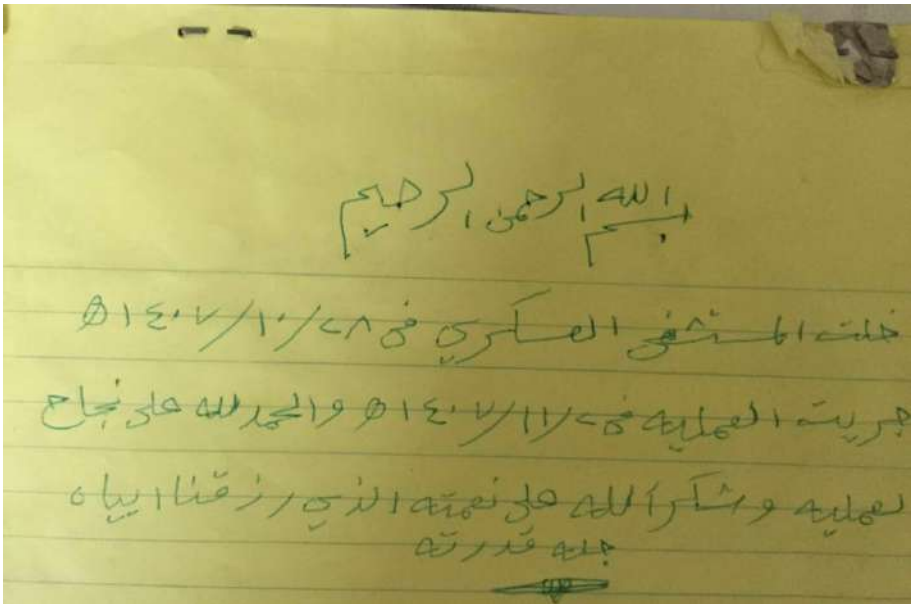 بسم الله الرحمن الرحيم
خلت المستشفى العسكري في ٢٨/١٠/١٤٠٧ه
جريت العمليه في ٢/١١/١٤٠٧ه والحمد لله على نجاح
لعمليه وشكراً لله على نعمته الذي رزقنا اياه
جله قدرته